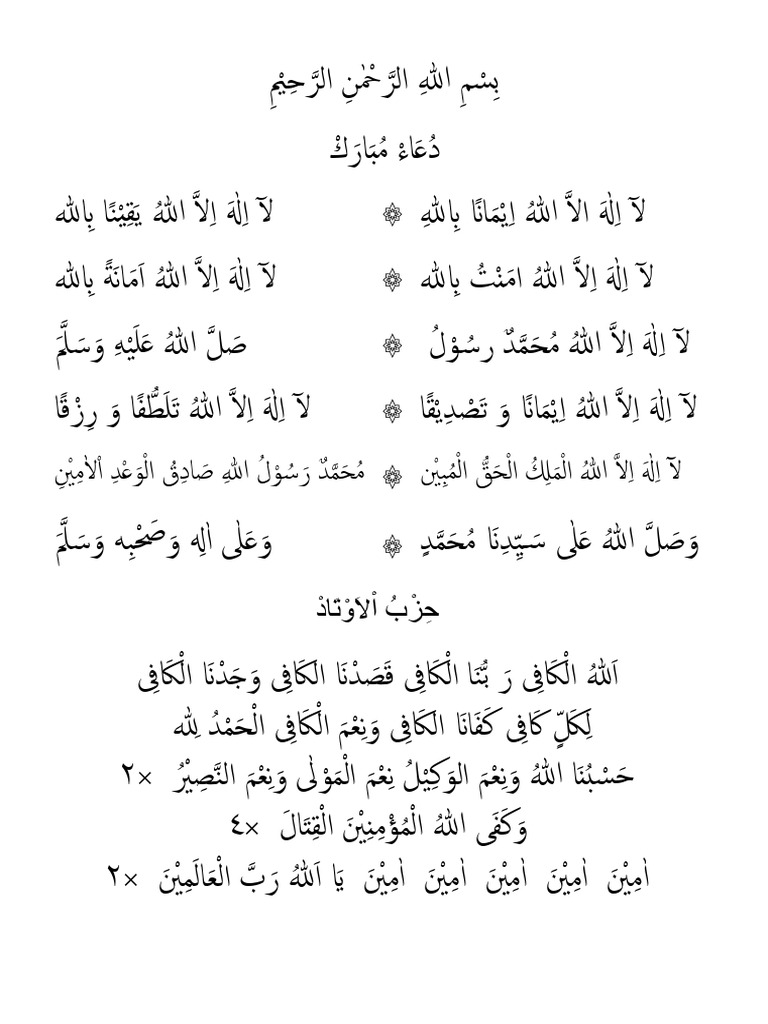 بِسْمِ اللهِ الرَّحْمٰنِ الرَّحِيْمِ
دُعَاءْ مُبَارَكْ
لَآ اِلٰهَ الاَّ اللهُ اِيْمَانًا بِاللهِ ۞ لَآ اِلٰهَ اِلاَّ اللهُ يَقِيْنًا بِالله
لَآ اِلٰهَ اِلاَّ اللهُ امَنْتُ بِالله ۞ لَآ اِلٰهَ اِلاَّ اللهُ اَمَانَةً بِالله
لَآ اِلٰهَ اِلاَّ اللهُ مُحَمَّدٌ رسُوْلُ ۞ صَلَّ اللهُ عَلَيْهِ وَسَلَّمَ
لَآ اِلٰهَ اِلاَّ اللهُ اِيْمَانًا وَ تَصْدِيْقًا ۞ لَآ اِلٰهَ اِلاَّ اللهُ تَلَطُّفًا وَ رِزْقًا
لَآ اِلٰهَ اِلاَّ اللهُ الْمَلِكُ الْحَقُّ الْمُبِيْن ۞ مُحَمَّدٌ رَسُوْلُ اللهِ صَادِقُ الْوَعْدِ اْلاٰمِيْنِ
وَصَلَّ اللهُ عَلٰى سَيِّدِنَا مُحَمَّدٍ ۞ وَعَلٰى اٰلِه وَصَحْبِه وَسَلَّمَ
حِزْبُ اْلاَوْتَادْ
اَللهُ الْكَافِى رَ بُّنَا الْكَافِى قَصَدْنَا الكَافِى وَجَدْنَا الْكَافِى
لِكَلٍّ كَافِى كَفَانَا الكَافِى وَنِعْمَ الْكَافِى الْحَمْدُ لِلّٰه
حَسْبُنَا اللهُ وَنِعْمَ الوَكِيْلُ نِعْمَ الْمَوْلٰى وَنِعْمَ النَّصِيْرُ ×٢
وَكَفَى اللهُ الْمُؤْمِنِيْنَ الْقِتَالَ ×٤
اٰمِيْنَ اٰمِيْنَ اٰمِيْنَ اٰمِيْنَ اٰمِيْنَ يَا اَللهُ رَبَّ الْعَالَمِيْنَ ×٢